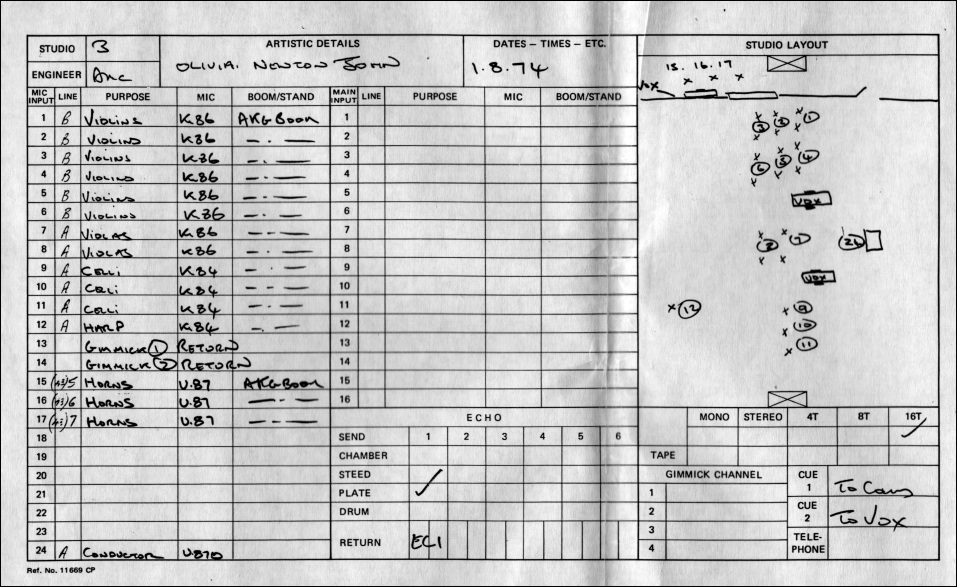 STUDIO 3 ARTISTIC DETAILS DATES – TIMES – ETC. STUDIO LAYOUT
OLIVIA. NEWTON JOHN 1.8.74
ENGINEER
MIC INPUT LINE PURPOSE MIC BOOM/STAND MAIN INPUT LINE PURPOSE MIC BOOM/STAND
1 B VIOLINS K.86 AKG BOOM 1
2 B VIOLINS K86 —.— 2
3 B VIOLINS K86 —.— 3
4 B VIOLINS K86 —.— 4
5 B VIOLINS K86 —.— 5
6 B VIOLINS K86 —.— 6
7 A VIOLAS K86 —.— 7
8 A VIOLAS K86 —.— 8
9 A CELLI K84 —.— 9
10 A CELLI K84 —.— 10
11 A CELLI K84 —.— 11
12 A HARP K84 —.— 12
13 GIMMICK 1 RETURN 13
14 GIMMICK 2 RETURN 14
15 5 HORNS U.87 AKG BOOM 15
16 6 HORNS U.87 —.— 16
17 7 HORNS U.87 —.—
18
19
20
21
22
23
24 A CONDUCTOR U.87
ECHO
SEND 1 2 3 4 5 6
CHAMBER
STEED
PLATE ✓
DRUM
RETURN EC1
15. 16. 17
VOX
2 3 1
6 5 4
VOX
8 7 24
VOX
12 9
10
11
MONO STEREO 4T 8T 16T
TAPE ✓
GIMMICK CHANNEL CUE 1 To Cans
1
2 CUE 2 To VOX
3
4 TELE-PHONE
Ref. No. 11669 CP